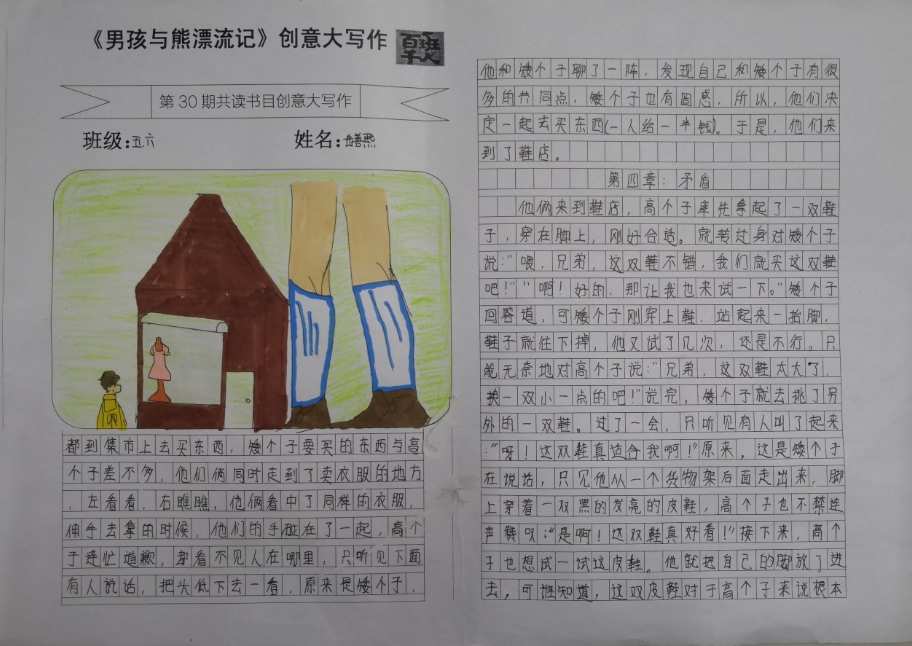 《男孩与熊漂流记》创意大写作
百班千人
第30期共读书目创意大写作
班级:五六
姓名:
都到集市上去买东西,矮个子要买的东西与高
个子差不多,他们俩同时走到了卖衣服的地方
,左看看,右瞧瞧,他俩看中了同样的衣服,
伸手去拿的时候,他们的手碰在了一起,高个
子连忙道歉,穿看不见人在哪里,只听见下面
有人说话,把头低下去一看,原来是矮个子,
他和矮个子聊了一阵,发现自己和矮个子有很
多的共同点,矮个子也有同感,所以,他们决
定一起去买东西(一人给一半钱)。于是,他们来
到了鞋店。
第四章:矛盾
他俩来到鞋店,高个子率先拿起了一双鞋
子,穿在脚上,刚好合适。就转过身对矮个子
说:“喂,兄弟,这双鞋不错,我们就买这双鞋
吧!”“啊!好的,那让我也来试一下。”矮个子
回答道,可矮个子刚穿上鞋,站起来一抬脚,
鞋子就往下掉,他又试了几次,还是不行。只
能无奈地对高个子说:“兄弟,这双鞋太大了,
换一双小一点的吧!”说完,矮个子就去挑了另
外的一双鞋。过了一会,只听见有人叫了起来
:“呀!这双鞋真适合我啊!”原来,这是矮个子
在说话,只见他从一个货物架后面走出来,脚
上穿着一双黑的发亮的皮鞋,高个子也不禁连
声赞叹:“是啊!这双鞋真好看!”接下来,高个
子也想试一试这皮鞋。他就把自己的脚放了进
去,可谁知道,这双皮鞋对于高个子来说根本